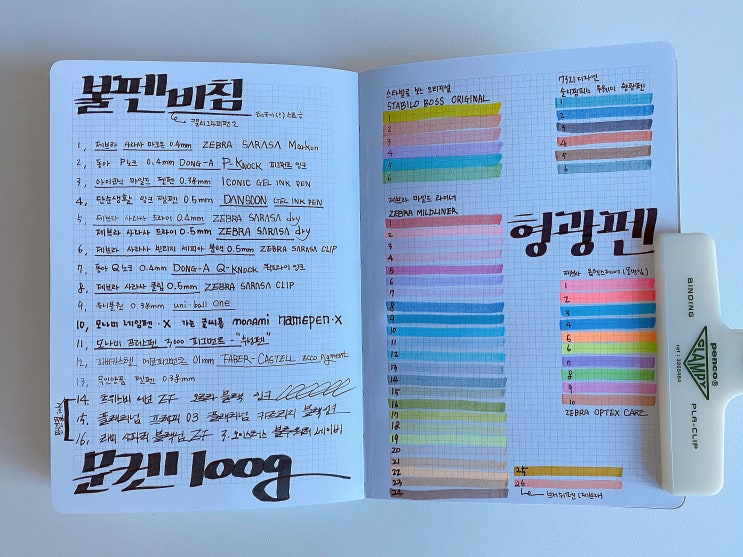 볼펜비침
1, 제브라 사라사 마크온 0.4mm ZEBRA SARASA Markon
2, 동아 P노크 0.4mm DONG-A P-KNOCK 피그먼트 잉크
3, 아이코닉 마일드 젤펜 0.38mm ICONIC GEL INK PEN
4, 단순생활 잉크 젤펜 0.5mm DANSOON GEL INK PEN
5, 제브라 사라사 드라이 0.4mm ZEBRA SARASA dry
제브라 사라사 드라이 0.5mm ZEBRA SARASA dry
6, 제브라 사라사 빈티지 세피아 블랙 0.5mm ZEBRA SARASA CLIP
7, 동아 Q노크 0.4mm DONG-A Q-KNOCK 퀵드라이 잉크
8, 제브라 사라사 클립 0.5mm ZEBRA SARASA CLIP
9, 유니볼원 0.38mm uni-ball one
10, 모나미 네임펜·X 가는 글씨용 monAmi namepen·X
11, 모나미 프러스펜 3000 피그먼트-"수성펜"
12, 파버카스텔 에코피그먼트 01mm FABER-CASTELL ecco pigment
13, 무인양품 젤펜 0.38mm
14, EF 오로라 블랙 잉크
15, 플래티넘 프레피 03 플래티넘 카트리지 블랙
16, 라미 사파리 블랙닙 EF
문켄 100g
스타빌로 보스 오리지널
STABILO BOSS ORIGINAL
1
2
3
4
5
6
제브라 마일드 라이너
ZEBRA MILDLINER
1
2
3
4
5
6
7
8
9
10
11
12
13
14
15
16
17
18
19
20
21
22
23
24
7321 디자인
투웨이 형광펜
1
2
3
4
5
6
형광펜
제브라
1
2
3
4
5
6
7
8
9
10
ZEBRA OPTEX CARE
25
26
브러쉬펜(제브라)
BINDING
penco®
CLAMPY
PLA-CLIP